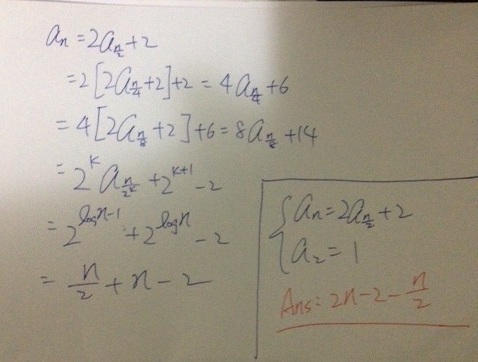 aₙ = 2a_{n/2} + 2
= 2[2a_{n/4} + 2] + 2 = 4a_{n/4} + 6
= 4[2a_{n/8} + 2] + 6 = 8a_{n/8} + 14
= 2^k a_{n/2^k} + 2^{k+1} - 2
= 2^{logn-1} + 2^{logn} - 2
= n/2 + n - 2
{ aₙ = 2a_{n/2} + 2
a₂ = 1
Ans: 2n - 2 - n/2